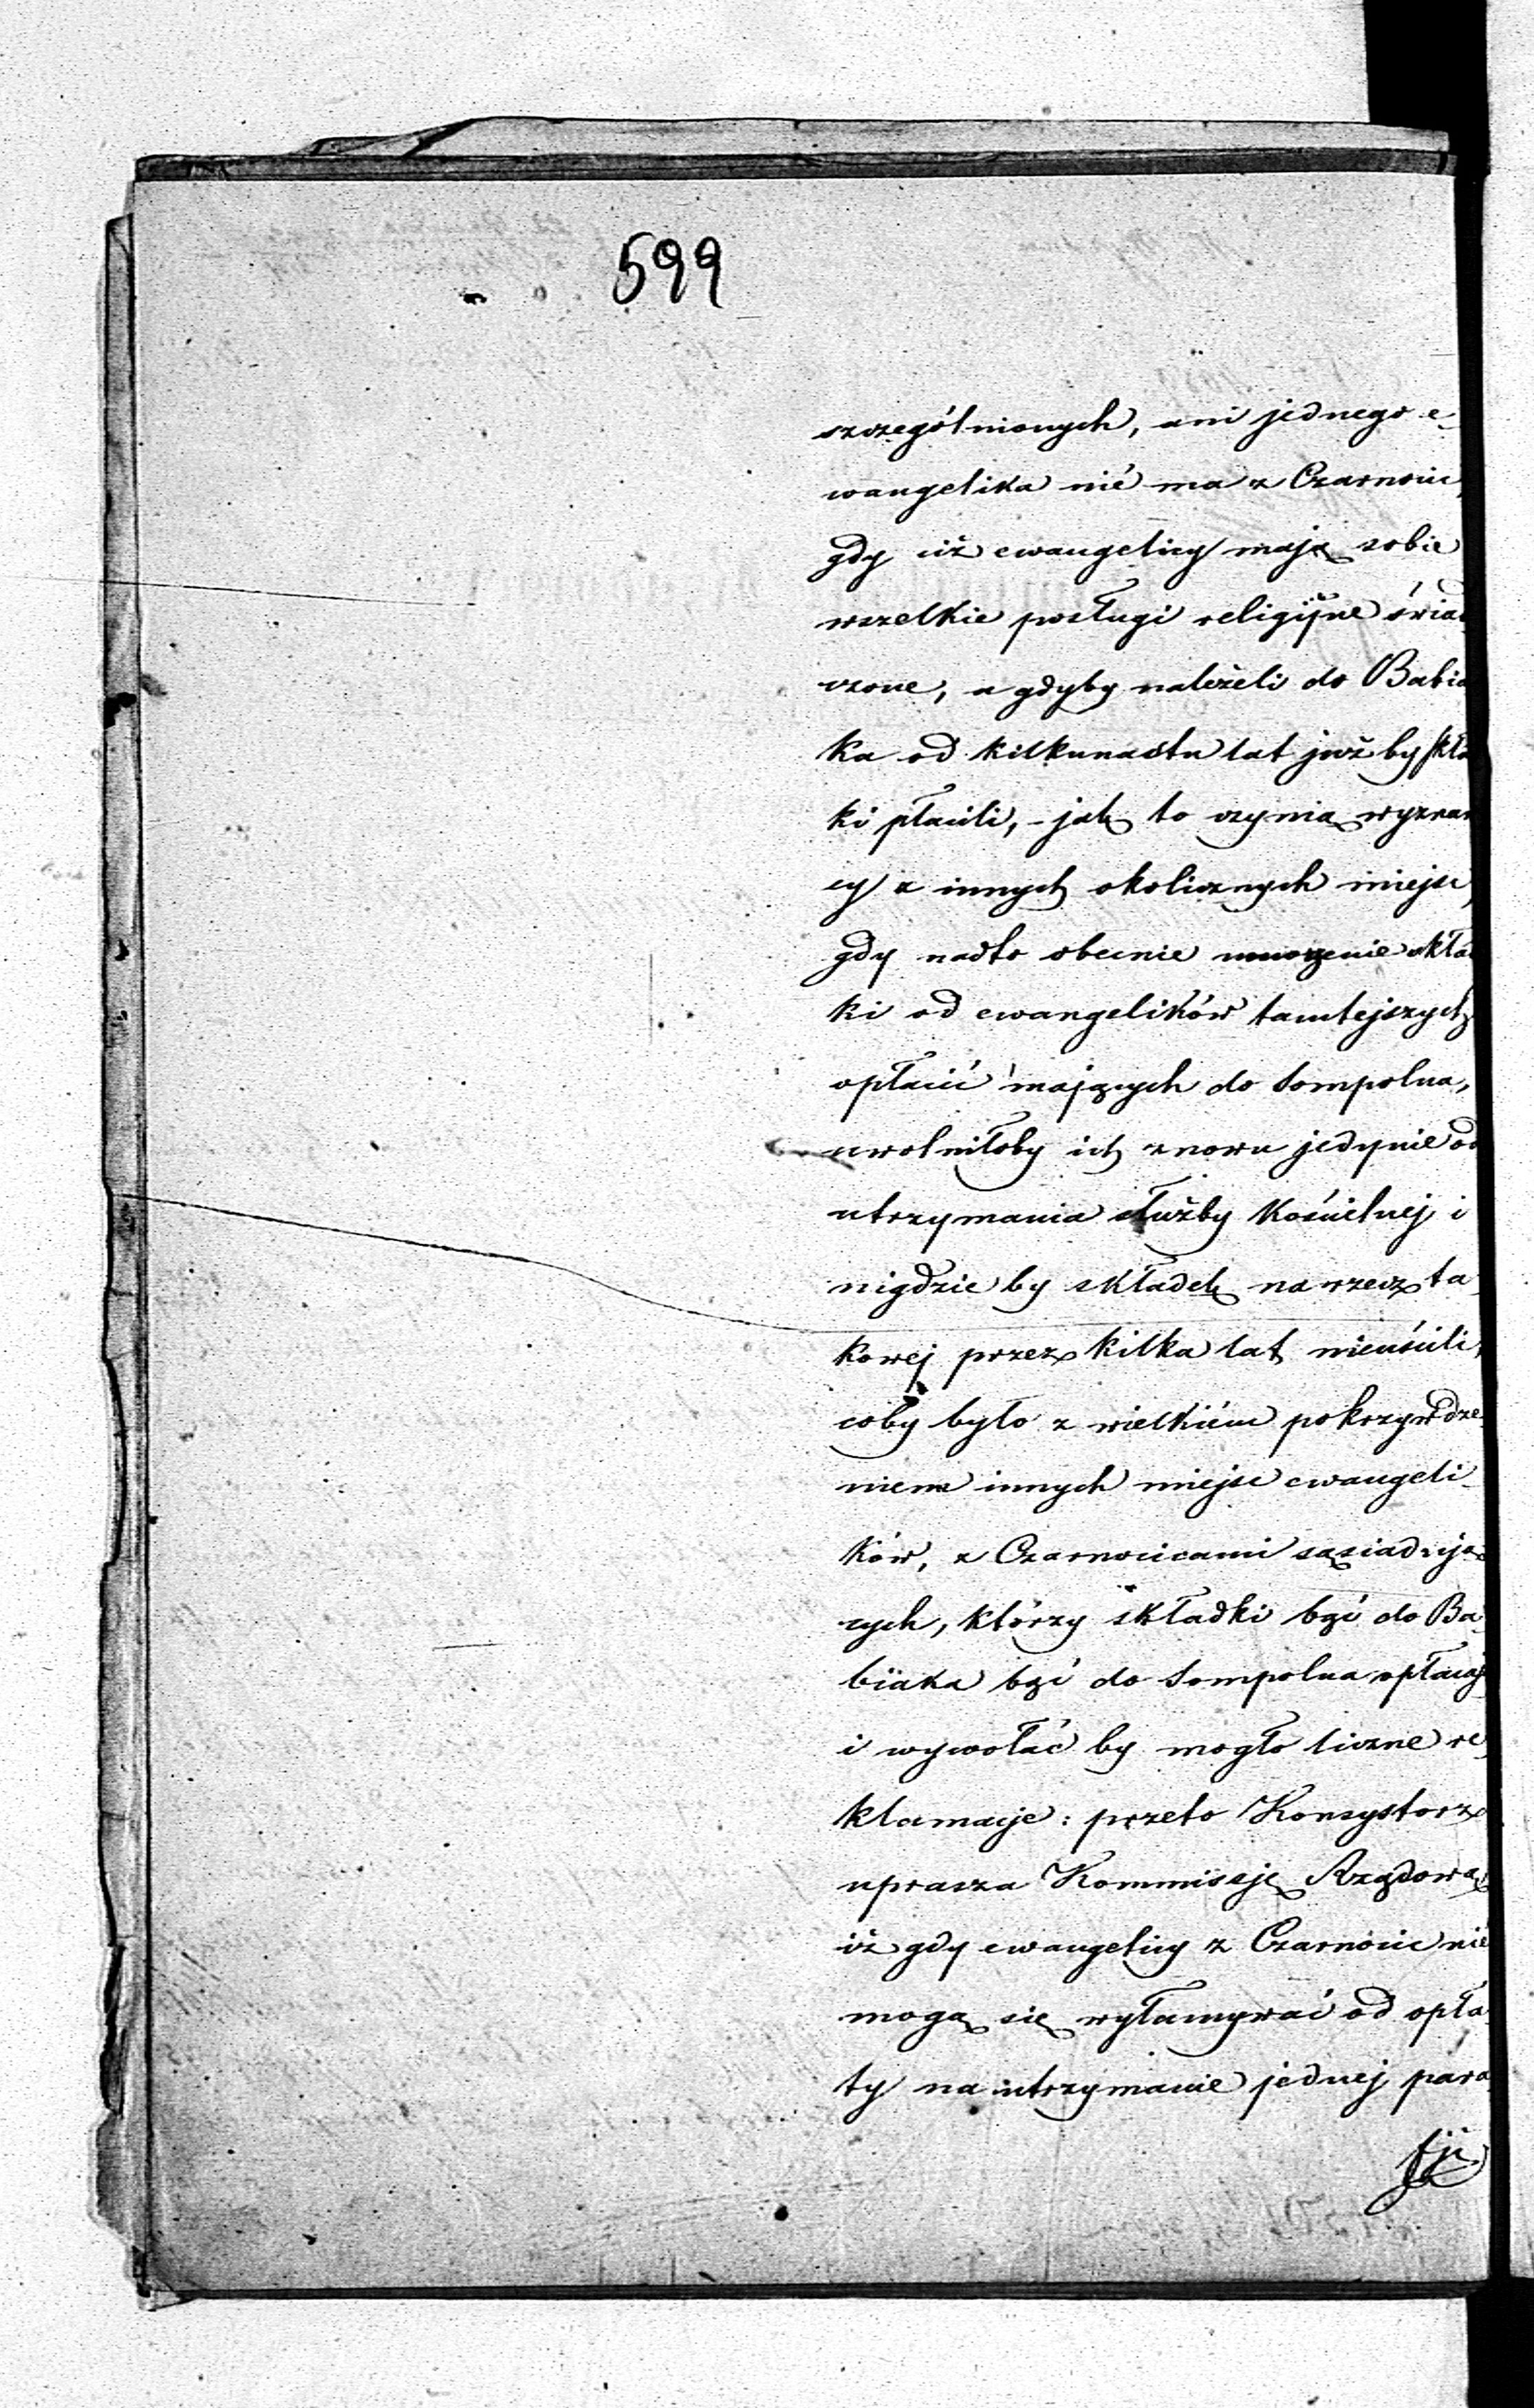 599
szczególnionych, ani jednego e-
wangelika nié ma z Czarnocic,
gdy ciż ewangelicy mają sobie
wszelkie posługi religijne świad
czone, a gdyby należeli do Babia
ka od kilkunastu lat jużby skła
ki płacili, - jak to czynią wyznaw
cy z innych okolicznych miejsc,
gdy nadto obecnie umorzenie skład
ki od ewangelików tamtejszych
opłacić mających do Sompolna,
uwolniłoby ich znowu jedynie od
utrzymania służby Kościelnej i
nigdzieby składek na rzecz ta
kowej przez kilka lat nieuiścili,
coby było z wielkiém pokrzywdze-
niem innych miejsc ewangeli-
ków, z Czarnocicami sąsiadują
cych, którzy składki bąć do Ba
biaka bąć do Sompolna opłacają
i wywołać by mogło liczne re
klamacje: przeto Konsystorz
uprasza Kommissję Rządową
iż gdy ewangelicy z Czarnocic nié
mogą się wyłamywać od opła
ty na utrzymanie jednej para
fji